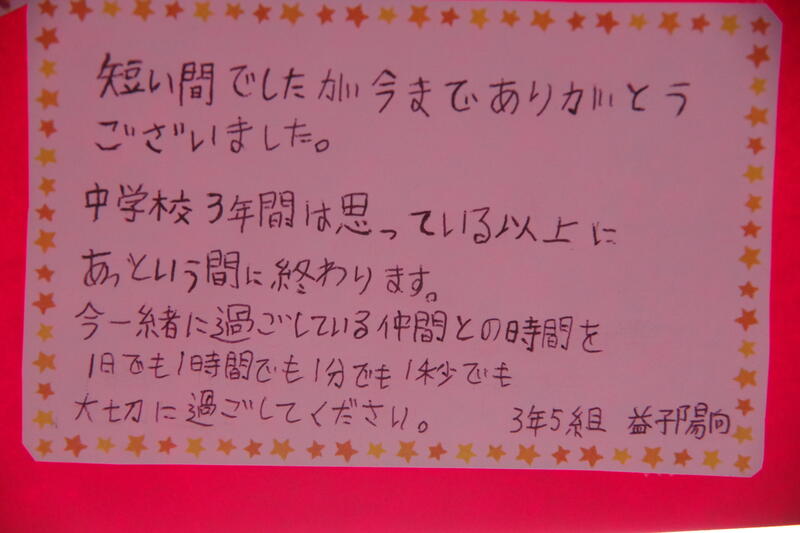 短い間でしたが今までありがとう
ございました。
中学校3年間は思っている以上に
あっという間に終わります。
今一緒に過ごしている仲間との時間を
1日でも1時間でも1分でも1秒でも
大切に過ごしてください。
3年5組 益子陽向